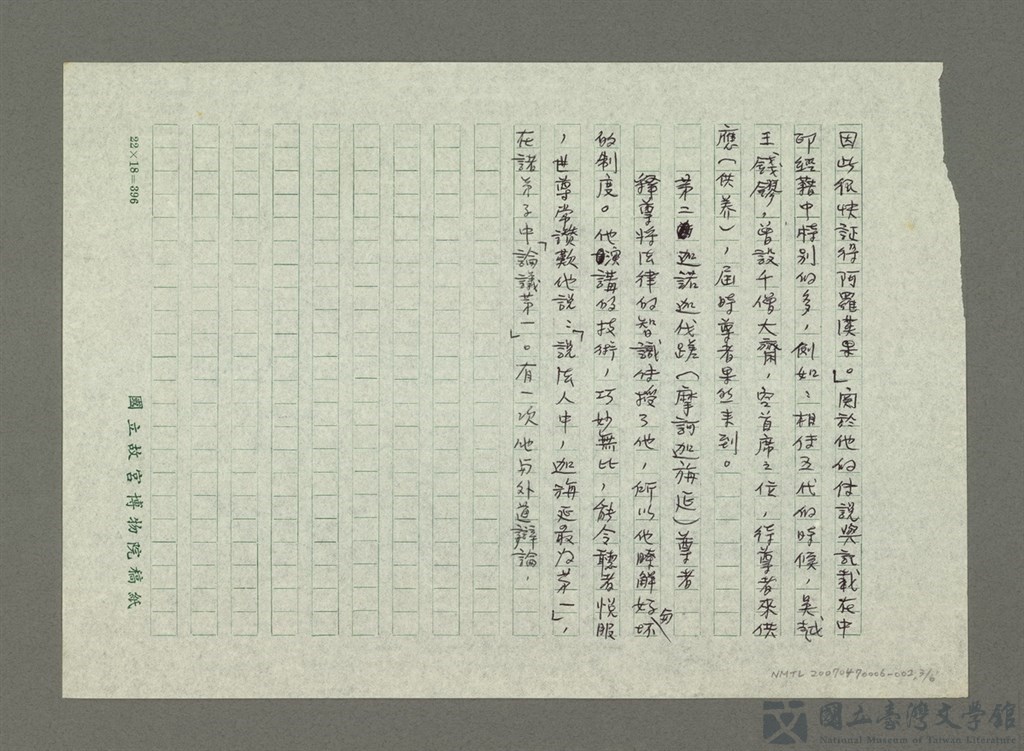 因此很快証得阿羅漢果」。関於他的伝說與記載在中
印經籍中特別的多，例如：相伝五代的時候，吳越
王錢鏐，曾設千僧大齋，空首席之位，待尊者來供
應（供养），屆時尊者果然来到。
第二 迦諾迦伐蹉（摩訶迦旃延）尊者
釋尊將法律的智識伝授了他，所以他瞭解好坏
的制度。他演講的技術，巧妙無比，能令聽者悦服
，世尊常讚歎他說：「說法人中，迦旃延最为第一」，
在諸弟子中「論議第一」。有一次他与外道辯論，
22×18=396
國立故宮博物院稿紙
NMTL 20070470006-002,3/6
國立臺灣文學館
National Museum of Taiwan Literature